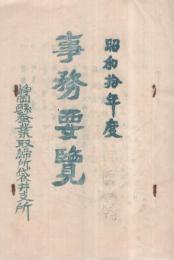 昭和拾年度
事務要覽
靜岡縣蠶業取締所袋井支所